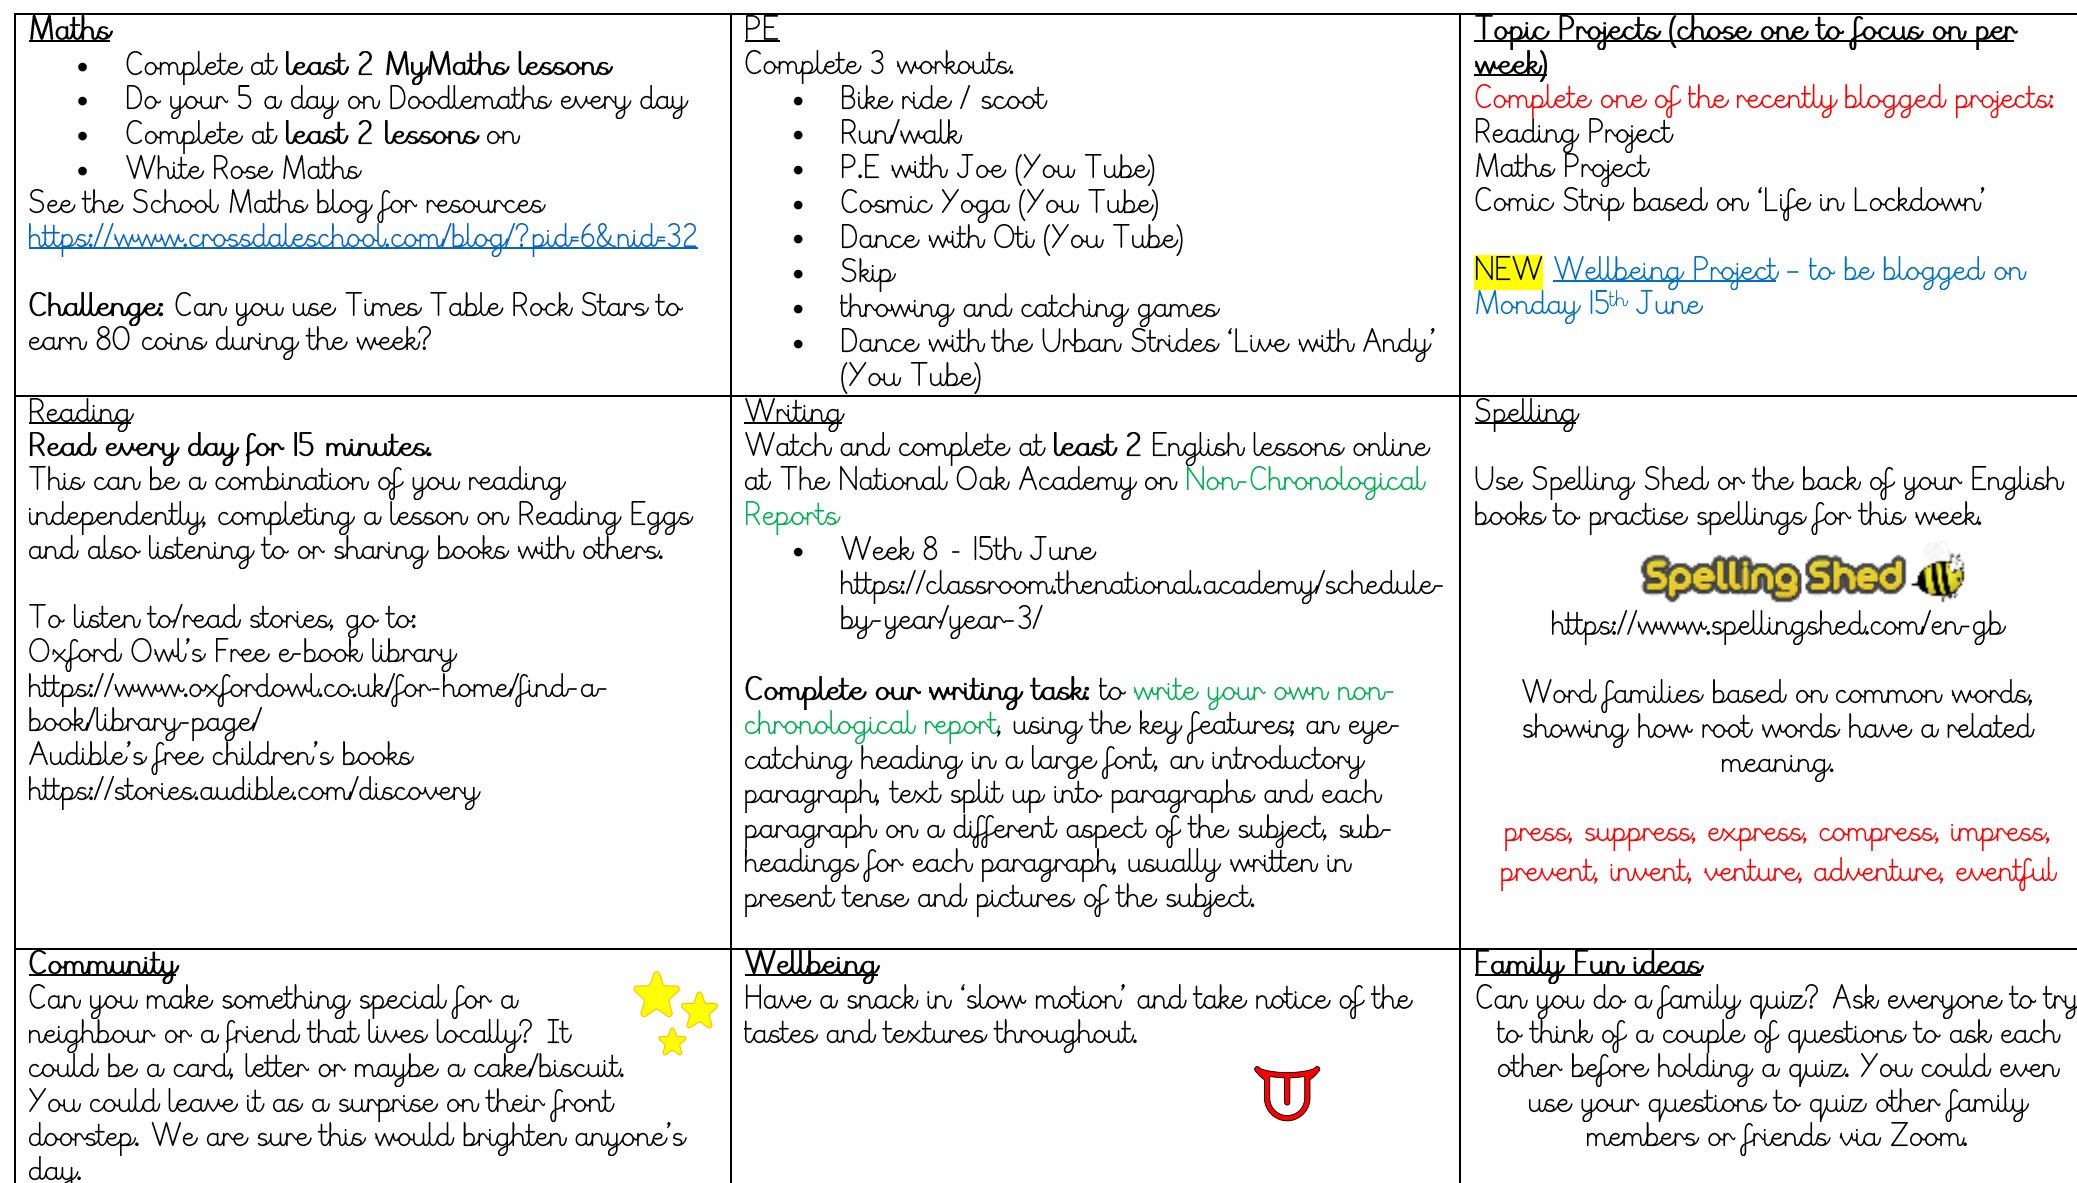 Maths
• Complete at least 2 MyMaths lessons
• Do your 5 a day on Doodlemaths every day
• Complete at least 2 lessons on
• White Rose Maths
See the School Maths blog for resources
https://www.crossdaleschool.com/blog/?pid=6&nid=32
Challenge: Can you use Times Table Rock Stars to
earn 80 coins during the week?
PE
Complete 3 workouts.
• Bike ride / scoot
• Run/walk
• P.E with Joe (You Tube)
• Cosmic Yoga (You Tube)
• Dance with Oti (You Tube)
• Skip
• throwing and catching games
• Dance with the Urban Strides ‘Live with Andy’
(You Tube)
Topic Projects (chose one to focus on per
week)
Complete one of the recently blogged projects:
Reading Project
Maths Project
Comic Strip based on ‘Life in Lockdown’
NEW Wellbeing Project – to be blogged on
Monday 15th June
Reading
Read every day for 15 minutes.
This can be a combination of you reading
independently, completing a lesson on Reading Eggs
and also listening to or sharing books with others.
To listen to/read stories, go to:
Oxford Owl’s Free e-book library
https://www.oxfordowl.co.uk/for-home/find-a-
book/library-page/
Audible’s free children’s books
https://stories.audible.com/discovery
Writing
Watch and complete at least 2 English lessons online
at The National Oak Academy on Non-Chronological
Reports
• Week 8 - 15th June
https://classroom.thenational.academy/schedule-
by-year/year-3/
Complete our writing task: to write your own non-
chronological report, using the key features; an eye-
catching heading in a large font, an introductory
paragraph, text split up into paragraphs and each
paragraph on a different aspect of the subject, sub-
headings for each paragraph, usually written in
present tense and pictures of the subject.
Spelling
Use Spelling Shed or the back of your English
books to practise spellings for this week.
Spelling Shed
https://www.spellingshed.com/en-gb
Word families based on common words,
showing how root words have a related
meaning.
press, suppress, express, compress, impress,
prevent, invent, venture, adventure, eventful
Community
Can you make something special for a
neighbour or a friend that lives locally? It
could be a card, letter or maybe a cake/biscuit.
You could leave it as a surprise on their front
doorstep. We are sure this would brighten anyone’s
day.
Wellbeing
Have a snack in ‘slow motion’ and take notice of the
tastes and textures throughout.
Family Fun ideas
Can you do a family quiz? Ask everyone to try
to think of a couple of questions to ask each
other before holding a quiz. You could even
use your questions to quiz other family
members or friends via Zoom.